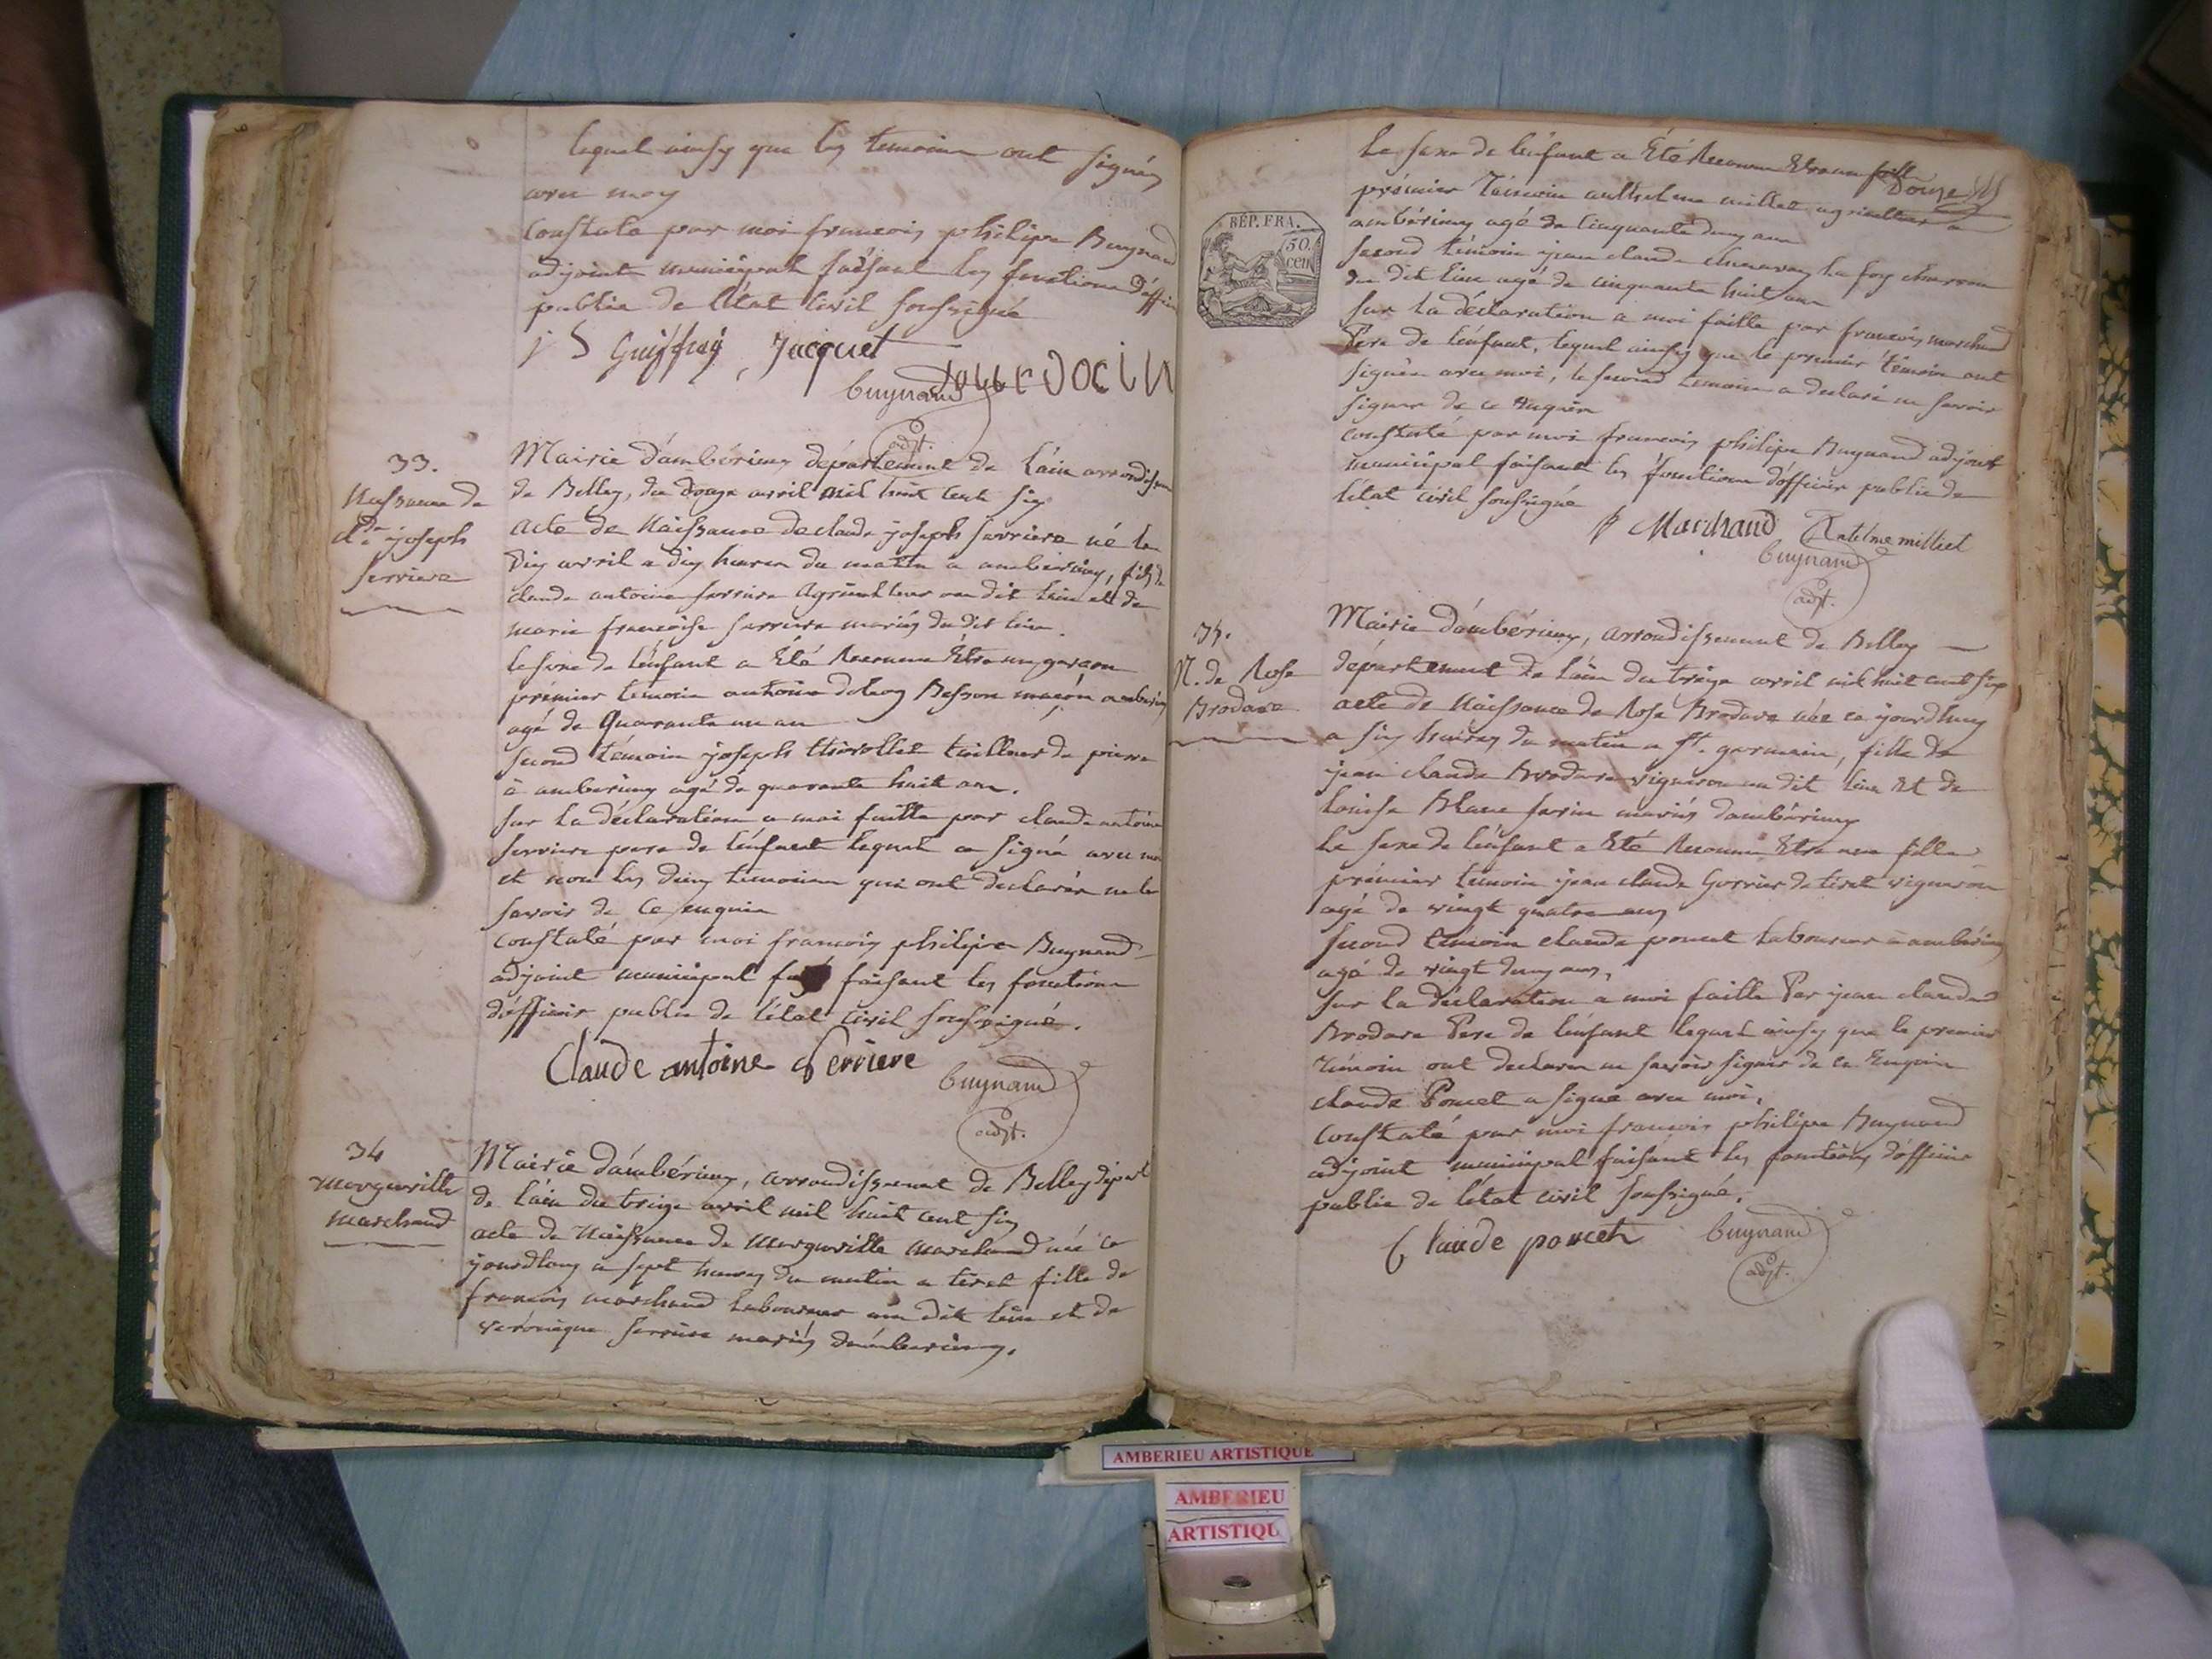 lequel ainsy que les temoins ont signés
avec moy
Constaté par moi françois philipe Buynand
adjoint municipal faisant les fonctions d'officier
publie de l'état civil soussigné
Guiffray, Jacquet
buynand
adjt.
33.
Naissance de
Cde joseph
serriere
Mairie d'ambérieux département de l'ain arrondissem
de Belley, du douze avril mil huit cent six
acte de Naissance de claude joseph serriere né le
dix avril a dix heures du matin a amberieux, fils de
claude antoine serriere Agriculteur au dit lieu et de
marie francoise serriere mariés du dit lieu.
le sexe de l'enfant a Eté Reconnu Etre un garcon
prémier temoin antoine Besson maçon a amberieux
agé de Quarante un an
second témoin joseph thivollet tailleur de pierre
à amberieux agé de quarante huit ans.
sur la déclaration a moi faitte par claude antoine
serriere pere de l'enfant lequel a signé avec moi
et non les deux temoins qui ont declarés ne le
savoir de ce enquis
Constaté par moi francois philipe Buynand
adjoint municipal faisant les fonctions
d'officier publie de l'état civil soussigné.
Claude antoine serriere
buynand
adjt.
34
margueritte
marchand
Mairie d'ambérieux, arrondissement de Belley départ
de l'ain du treize avril mil huit cent six
acte de Naissance de margueritte marchand née ce
jourdhuy a sept heures du matin a tiret fille de
françois marchand laboureur au dit lieu et de
veronique serriere mariés d'amberieux.
douze
RÉP. FRA.
50.
cen
Le sexe de l'enfant a Été Reconnu Etre une fille
prémier Témoin anthelme milliet agriculteur a
ambérieux agé de Cinquante deux ans
second témoin jean claude
du dit lieu agé de cinquante huit ans
sur la déclaration a moi faitte par francois marchand
Pere de l'enfant, lequel ainsy que le premier témoin ont
signés avec moi, le second temoin a declaré ne savoir
signer de ce Enquis
constaté par moi francois philipe Buynand adjoint
municipal faisant les fonctions d'officier publie de
l'état civil soussigné
f Marchand Antelme milliet
buynand
adjt.
35.
N. de Rose
Brodare
Mairie d'ambérieux, arrondissement de Belley
département de l'ain du treize avril mil huit cent six
acte de Naissance de Rose Brodare née ce jourdhuy
a six heures du matin a St. germain, fille de
jean claude Brodare vigneron au dit lieu Et de
Louise Blanc mariés d'ambérieux
le sexe de l'enfant a Eté Reconnu Etre une fille
prémier temoin jean claude de tiret vigneron
agé de vingt quatre ans
second témoin claude poncet laboureur à ambérieux
agé de vingt deux ans,
sur la déclaration a moi faitte Par jean claude
Brodare Pere de l'enfant lequel ainsy que le premier
Témoin ont declaré ne savoir signer de ce Enquis
claude Poncet a signé avec moi,
Constaté par moi francois philipe Buynand
adjoint municipal faisant les fonctions d'officier
publie de l'état civil soussigné.
Claude poncet
buynand
adjt.
AMBERIEU ARTISTIQUE
AMBERIEU
ARTISTIQU